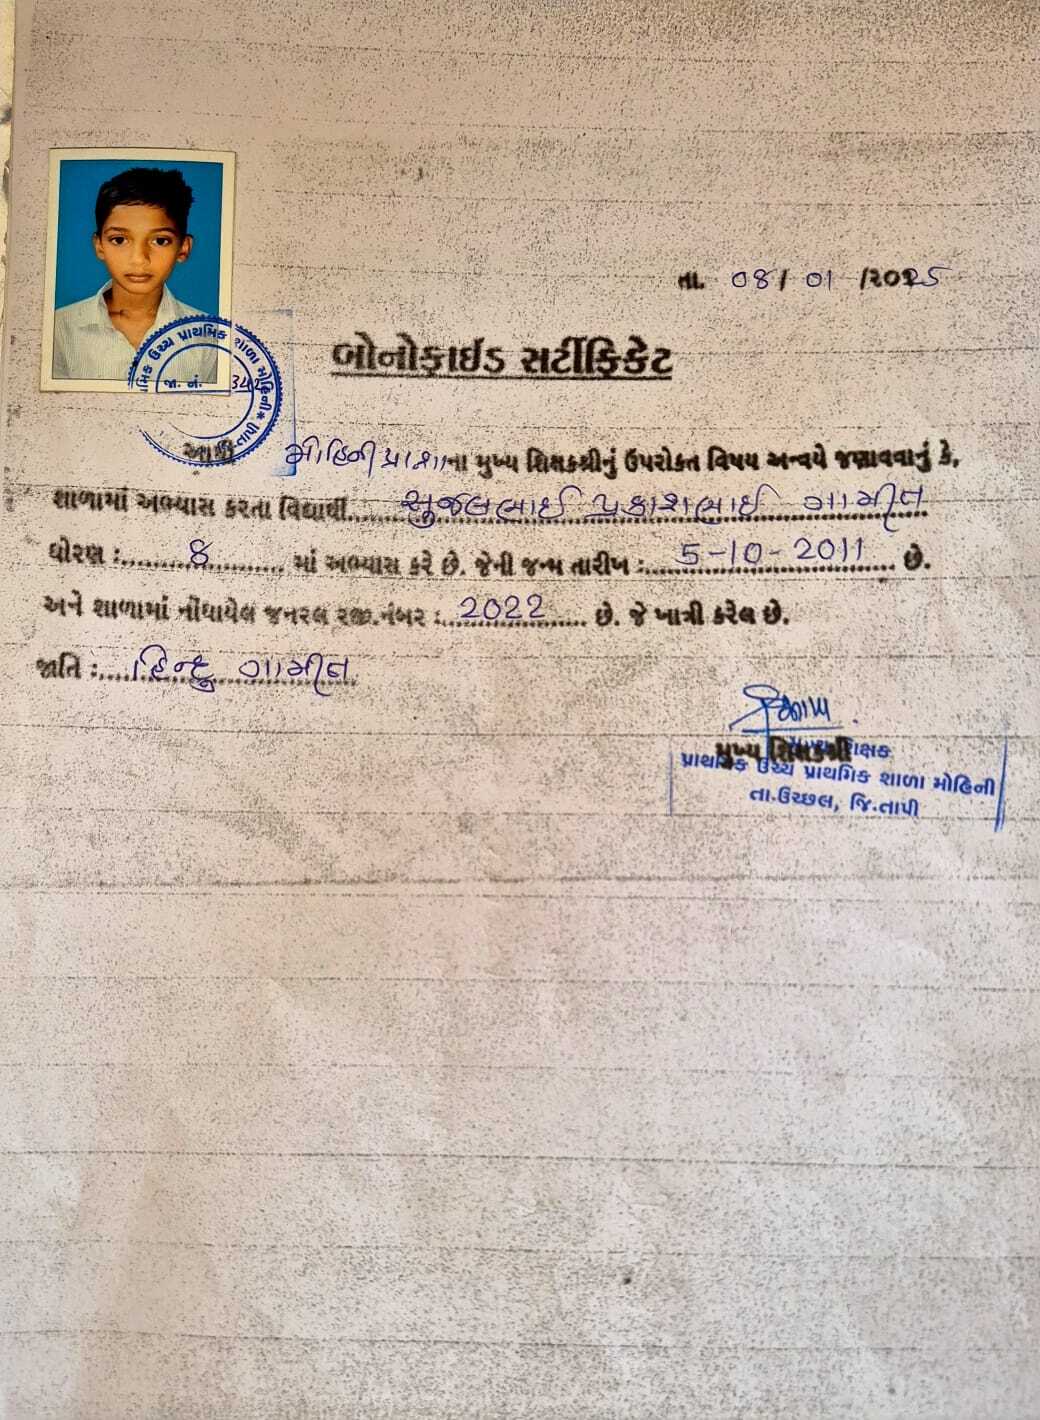 તા. 08/ 01 /૨૦૨5
બોનોફાઈડ સર્ટીફિકેટ
ઉચ્ચ પ્રાથમિક શાળા મોહિની
જા. નં. 342
આથી મોહિની પ્રા શાના મુખ્ય શિક્ષકશ્રીનું ઉપરોક્ત વિષય અન્વયે જણાવવાનું કે,
શાળામાં અભ્યાસ કરતા વિદ્યાર્થી સુજલભાઈ પ્રકાશભાઈ ગામીત
ધોરણ : 8 માં અભ્યાસ કરે છે. જેની જન્મ તારીખ : 5-10-2011 છે.
અને શાળામાં નોંધાયેલ જનરલ રજી.નંબર : 2022 છે. જે ખાત્રી કરેલ છે.
જાતિ : હિન્દુ ગામીત
મુખ્ય શિક્ષકશ્રી
મુખ્ય શિક્ષક
પ્રાથમિક ઉચ્ચ પ્રાથમિક શાળા મોહિની
તા.ઉચ્છલ, જિ.તાપી